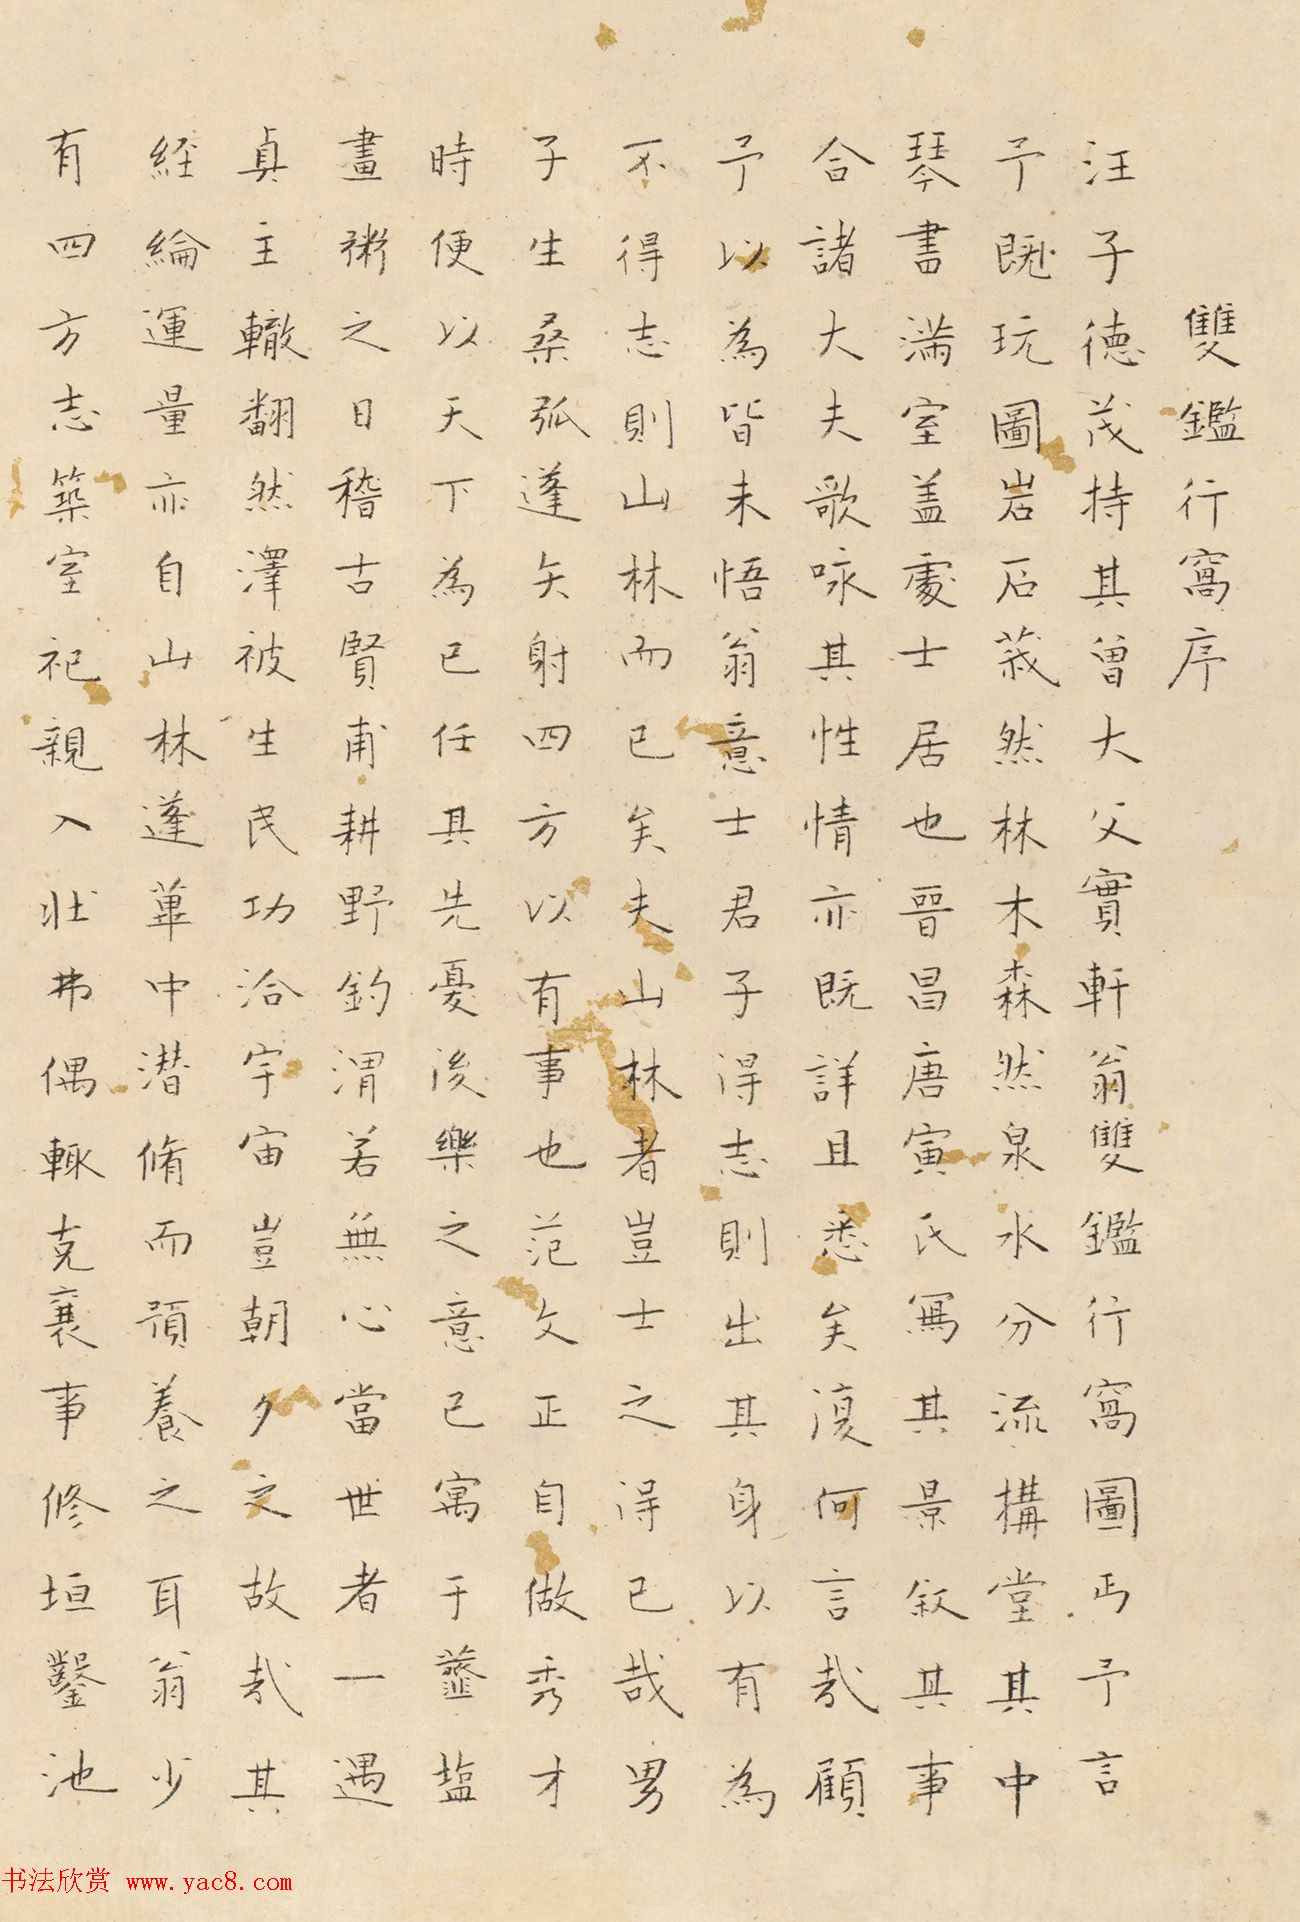 雙鑑行窩序
汪子德茂持其曾大父實軒翁雙鑑行窩圖丐予言
予既玩圖岩石莪然林木森然泉水分流構堂其中
琴書滿室蓋處士居也晉昌唐寅氏寫其景敘其事
合諸大夫歌咏其性情亦既詳且悉矣復何言哉顧
予以為皆未悟翁意士君子得志則出其身以有為
不得志則山林而已矣夫山林者豈士之得已哉男
子生桑弧蓬矢射四方以有事也范文正自做秀才
時便以天下為己任其先憂後樂之意已寓于虀塩
畫粥之日稽古賢甫耕野釣渭若無心當世者一遇
真主轍翻然澤被生民功洽宇宙豈朝夕之故哉其
經綸運量亦自山林蓬蓽中潛脩而預養之耳翁少
有四方志築室祀親入壯弗偶輒克襄事修垣鑿池
书法欣赏 www.yac8.com